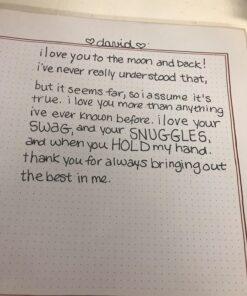 ♡david♡
i love you to the moon and back!
i've never really understood that,
but it seems far, so i assume it's
true. i love you more than anything
i've ever known before. i love your
swag, and your SNUGGLES,
and when you HOLD my hand.
thank you for always bringing out
the best in me.